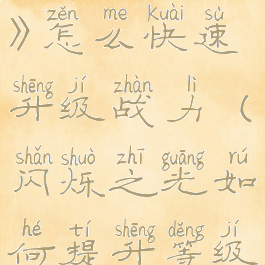 zěn me kuài sù
》怎么快速
shēng jí zhàn lì
升级战力（
shǎn shuò zhī guāng rú
闪烁之光如
hé tí shēng děng jí
何提升等级